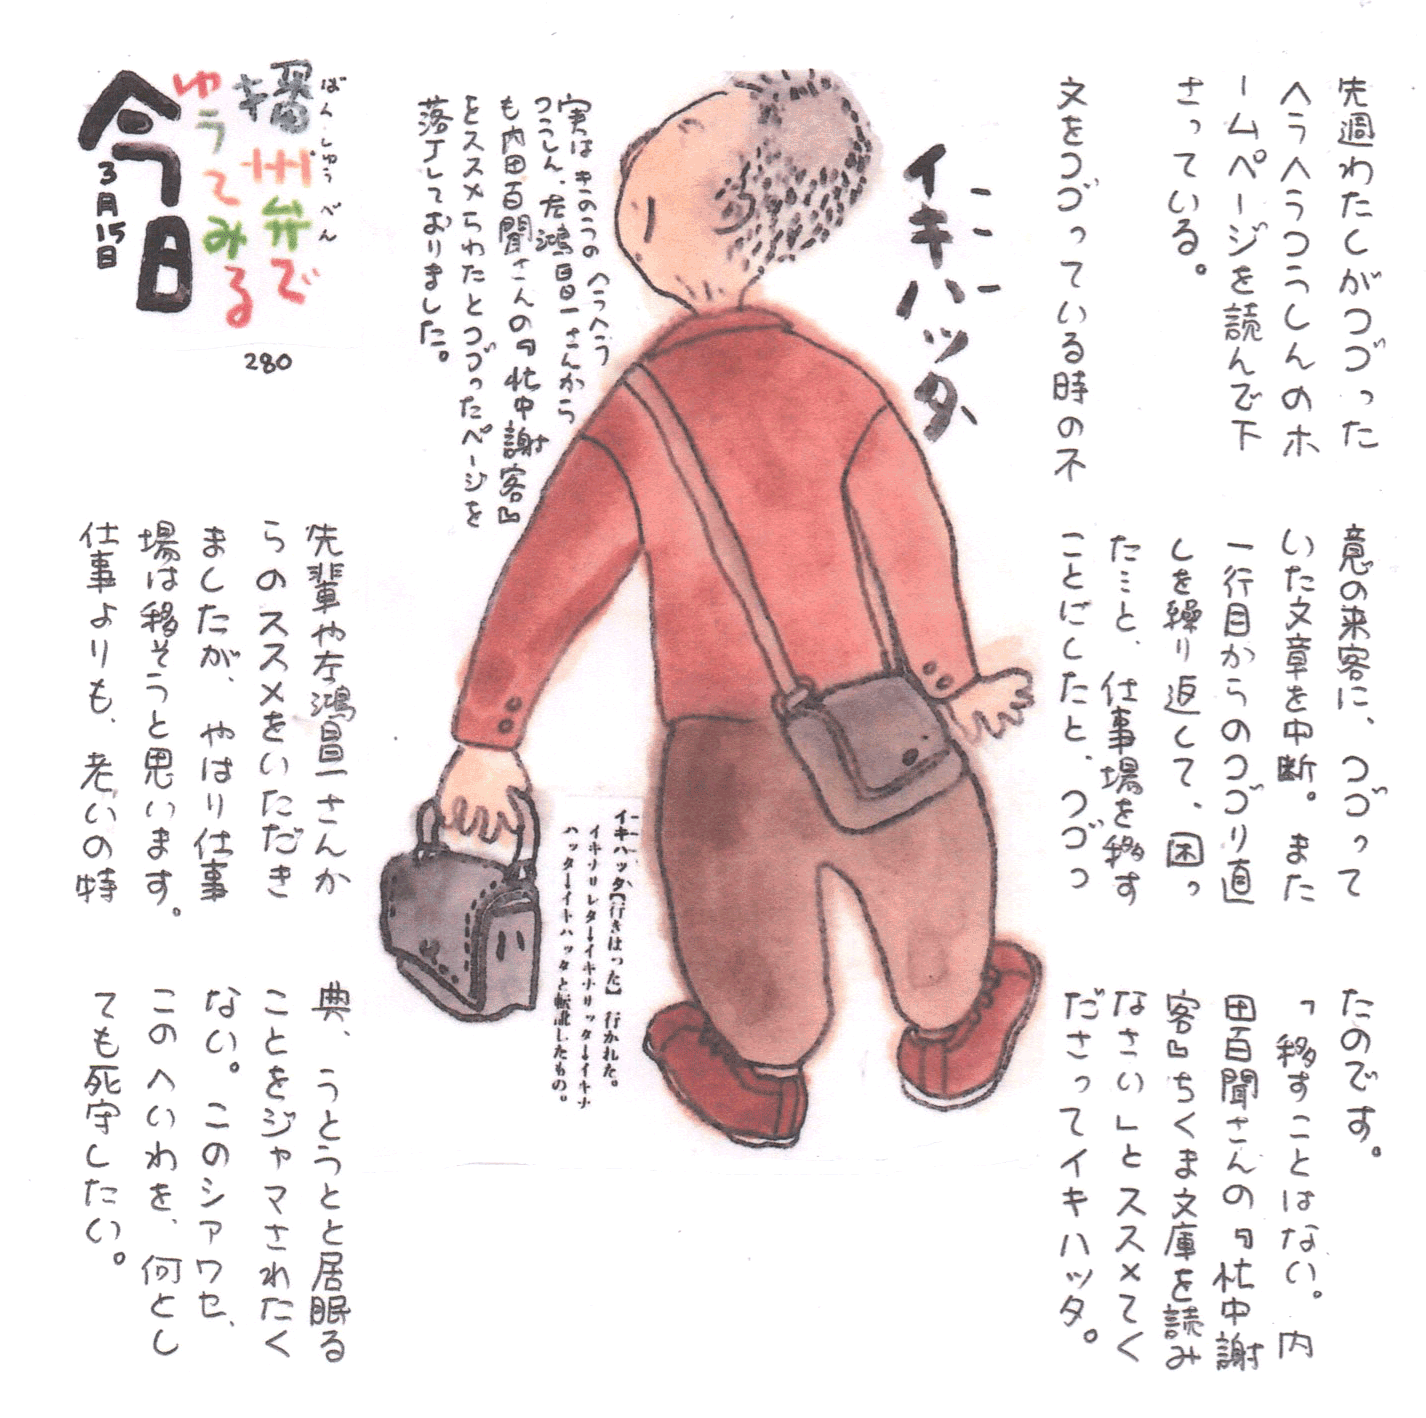 播州弁で
ばん しゅう べん
ゆうてみる
今日
3月15日
280
イキハッタ
先週わたしがつづった
ヘラヘラつうしんのホ
ームページを読んで下
さっている。
文をつづっている時の不
意の来客に、つづって
いた文章を中断。また
一行目からのつづり直
しを繰り返して、困っ
た…と、仕事場を移す
ことにしたと、つづっ
たのです。
「移すことはない。内
田百聞さんの『忙中謝
客』ちくま文庫を読み
なさい」とススメてく
ださってイキハッタ。
実はきのうのヘラヘラ
つうしん、左鴻昌一さんから
も内田百聞さんの『忙中謝客』
をススメられたとつづったページを
落丁しておりました。
イキハッタ【行きはった】行かれた。
イキナリレタ→イキナリッタ→イキナ
ハッタ→イキハッタと転訛したもの。
先輩や左鴻昌一さんか
らのススメをいただき
ましたが、やはり仕事
場は移そうと思います。
仕事よりも、老いの特
典、うとうとと居眠る
ことをジャマされたく
ない。このシアワセ、
このへいわを、何とし
ても死守したい。